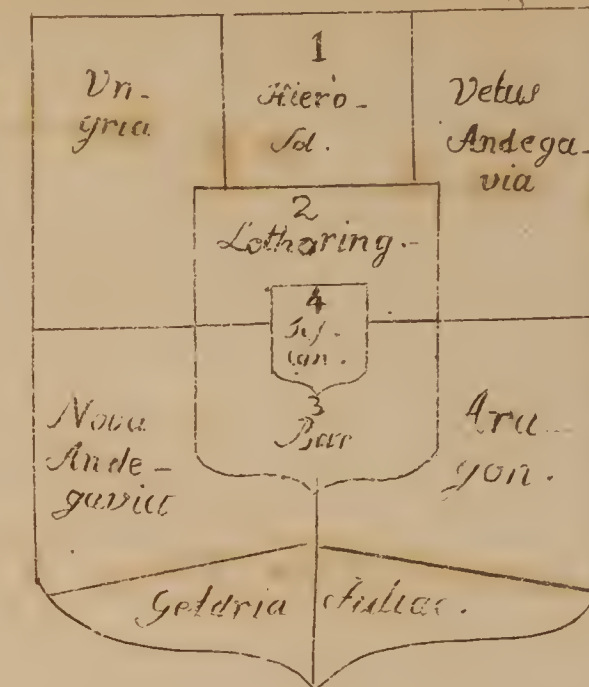 Vn-
gria
1
Hiero-
sol.
Vetus
Andega-
via
2
Lotharing.-
4
Tos-
can.
3
Bar
Nova
Ande-
gavia
Ara-
gon.
Geldria
Juliac.